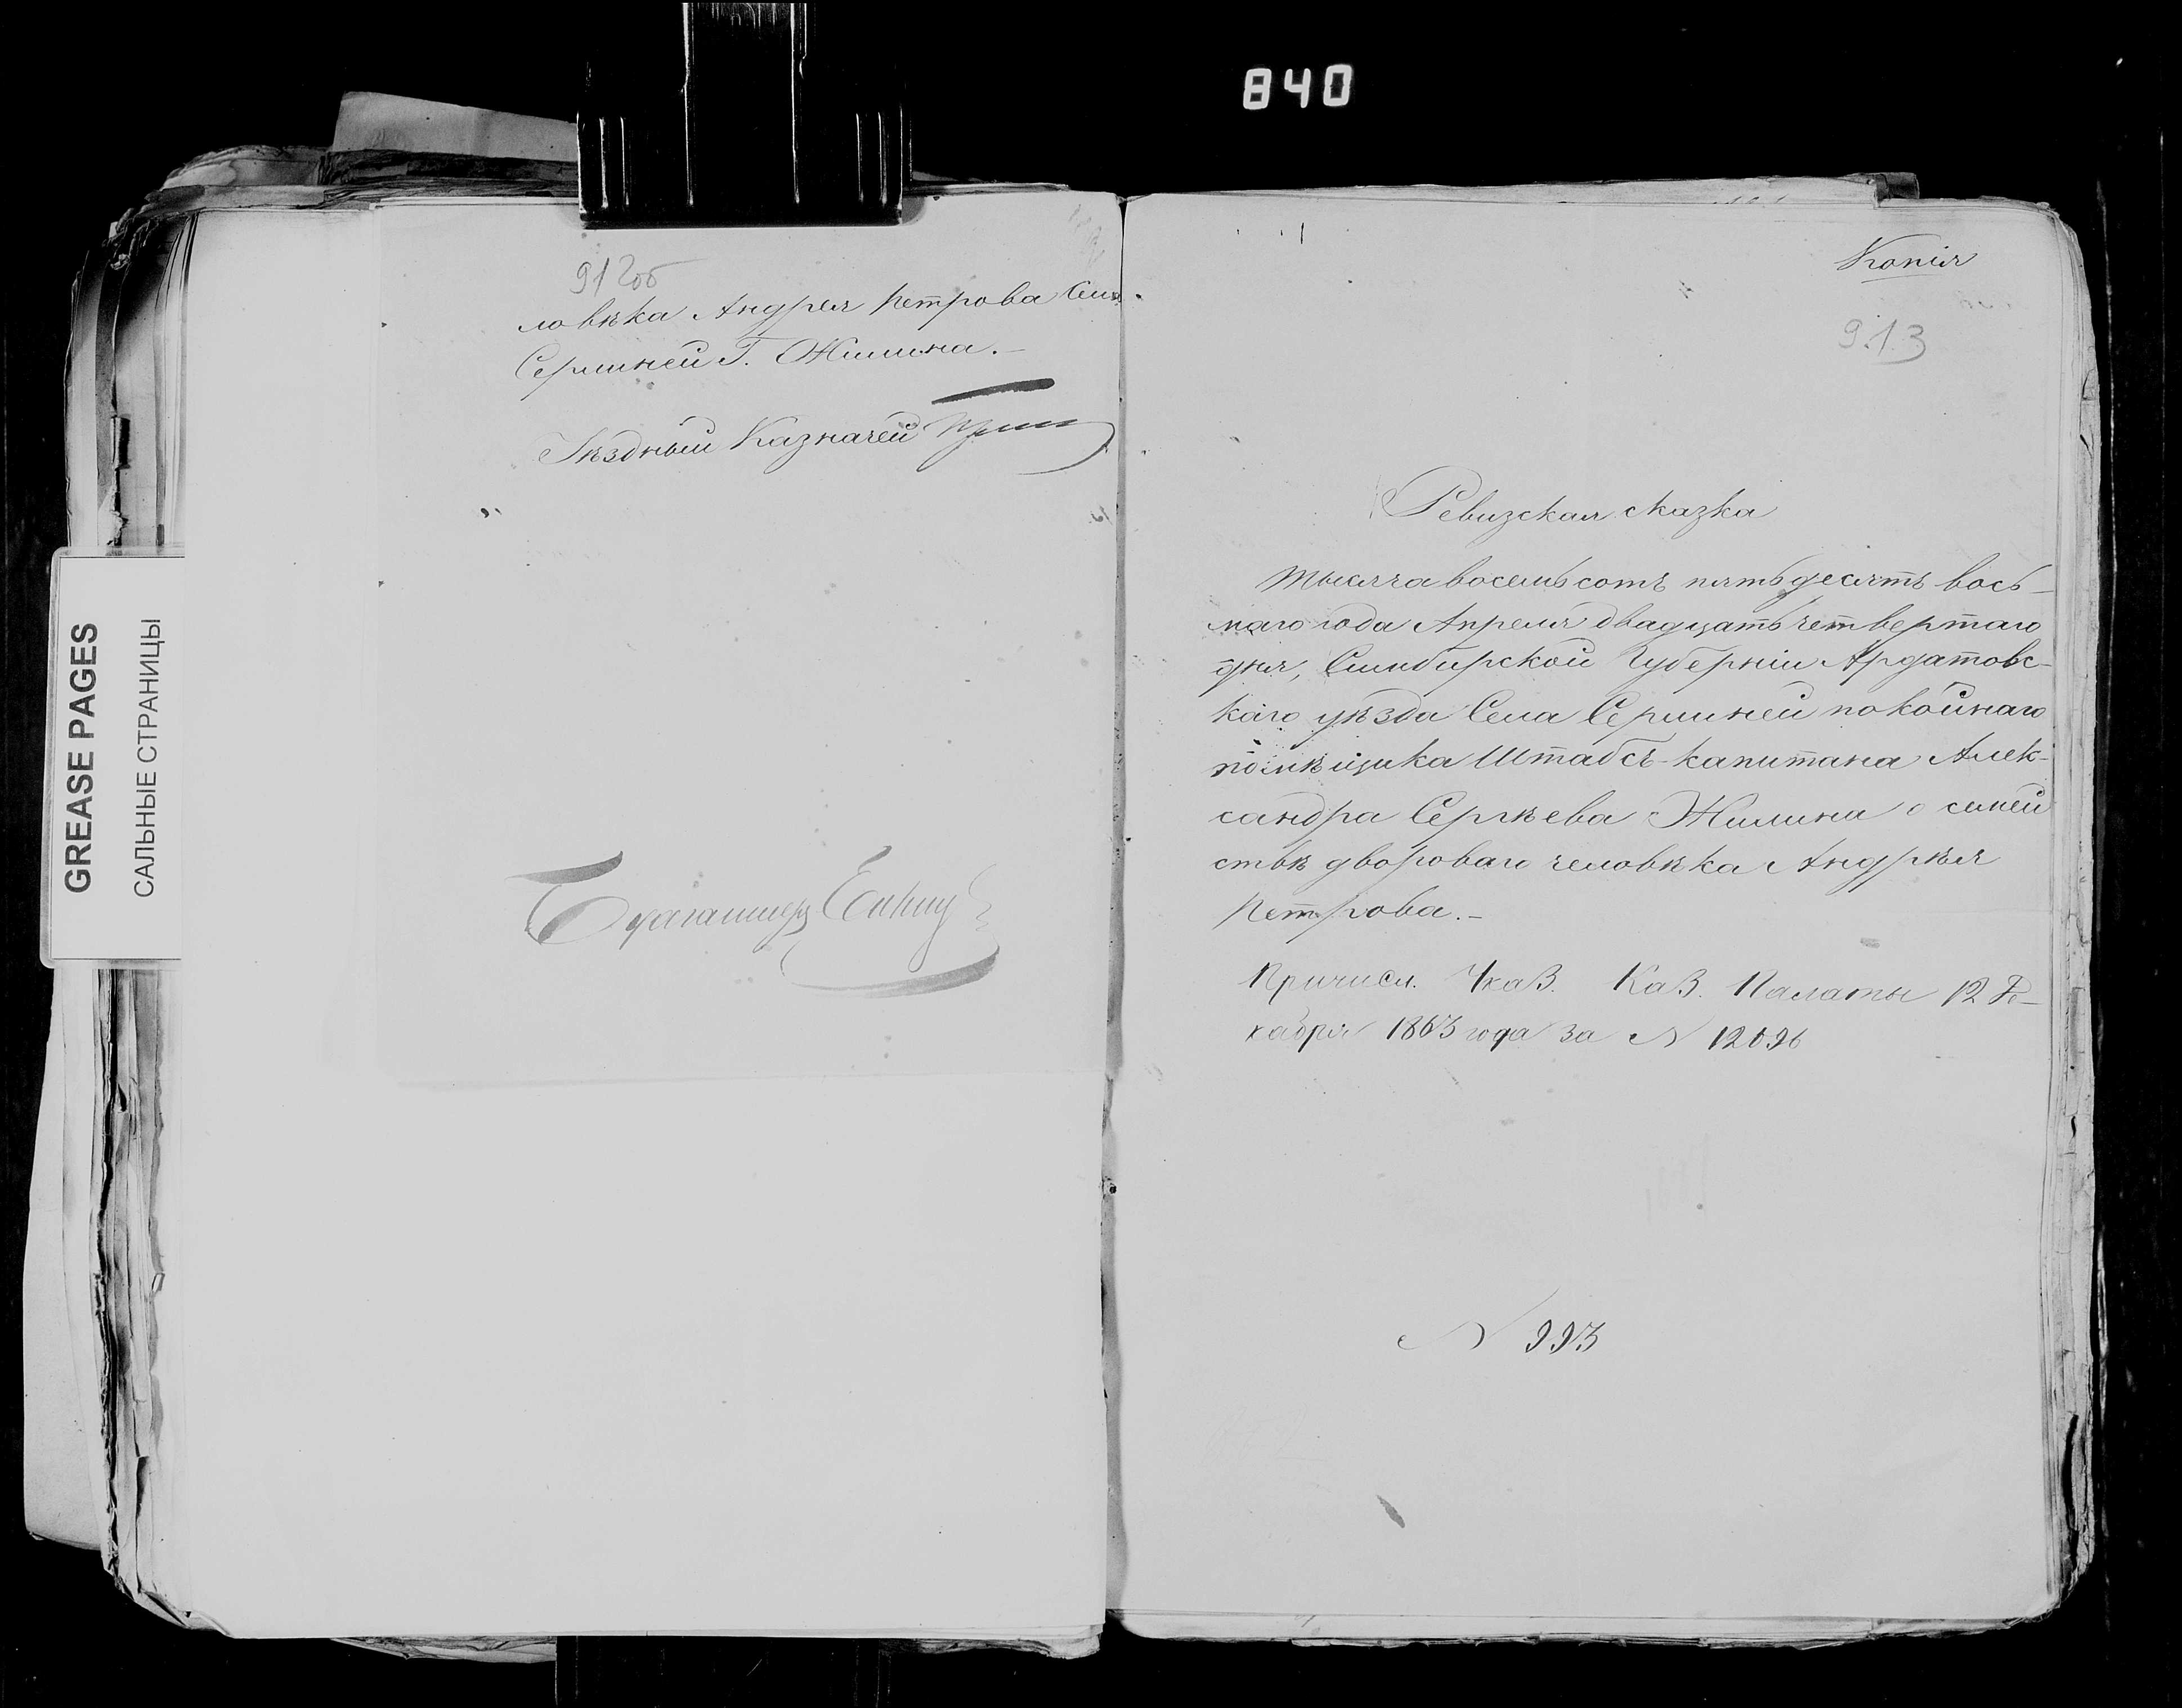 840
GREASE PAGES
САЛЬНЫЕ СТРАНИЦЫ
912об
ловѣка Андрея Петрова Села
Серминей Г. Жилина.-
Уѣздный Казначей
Бухгалтеръ
Копія
913
Ревизская сказка
тысяча восемьсотъ пятьдесятъ вось-
маго года Апреля двадцать четвертаго
дня, Симбирской Губерніи Ардатовс-
каго уѣзда Села Серминей покойнаго
помѣщика Штабсъ-капитана Алек-
сандра Сергѣева Жилина о семей
ствѣ двороваго человѣка Андрѣя
Петрова.-
Причисл. Указ. Каз. Палаты 12 Де-
кабря 1863 года за N 12096
N 993